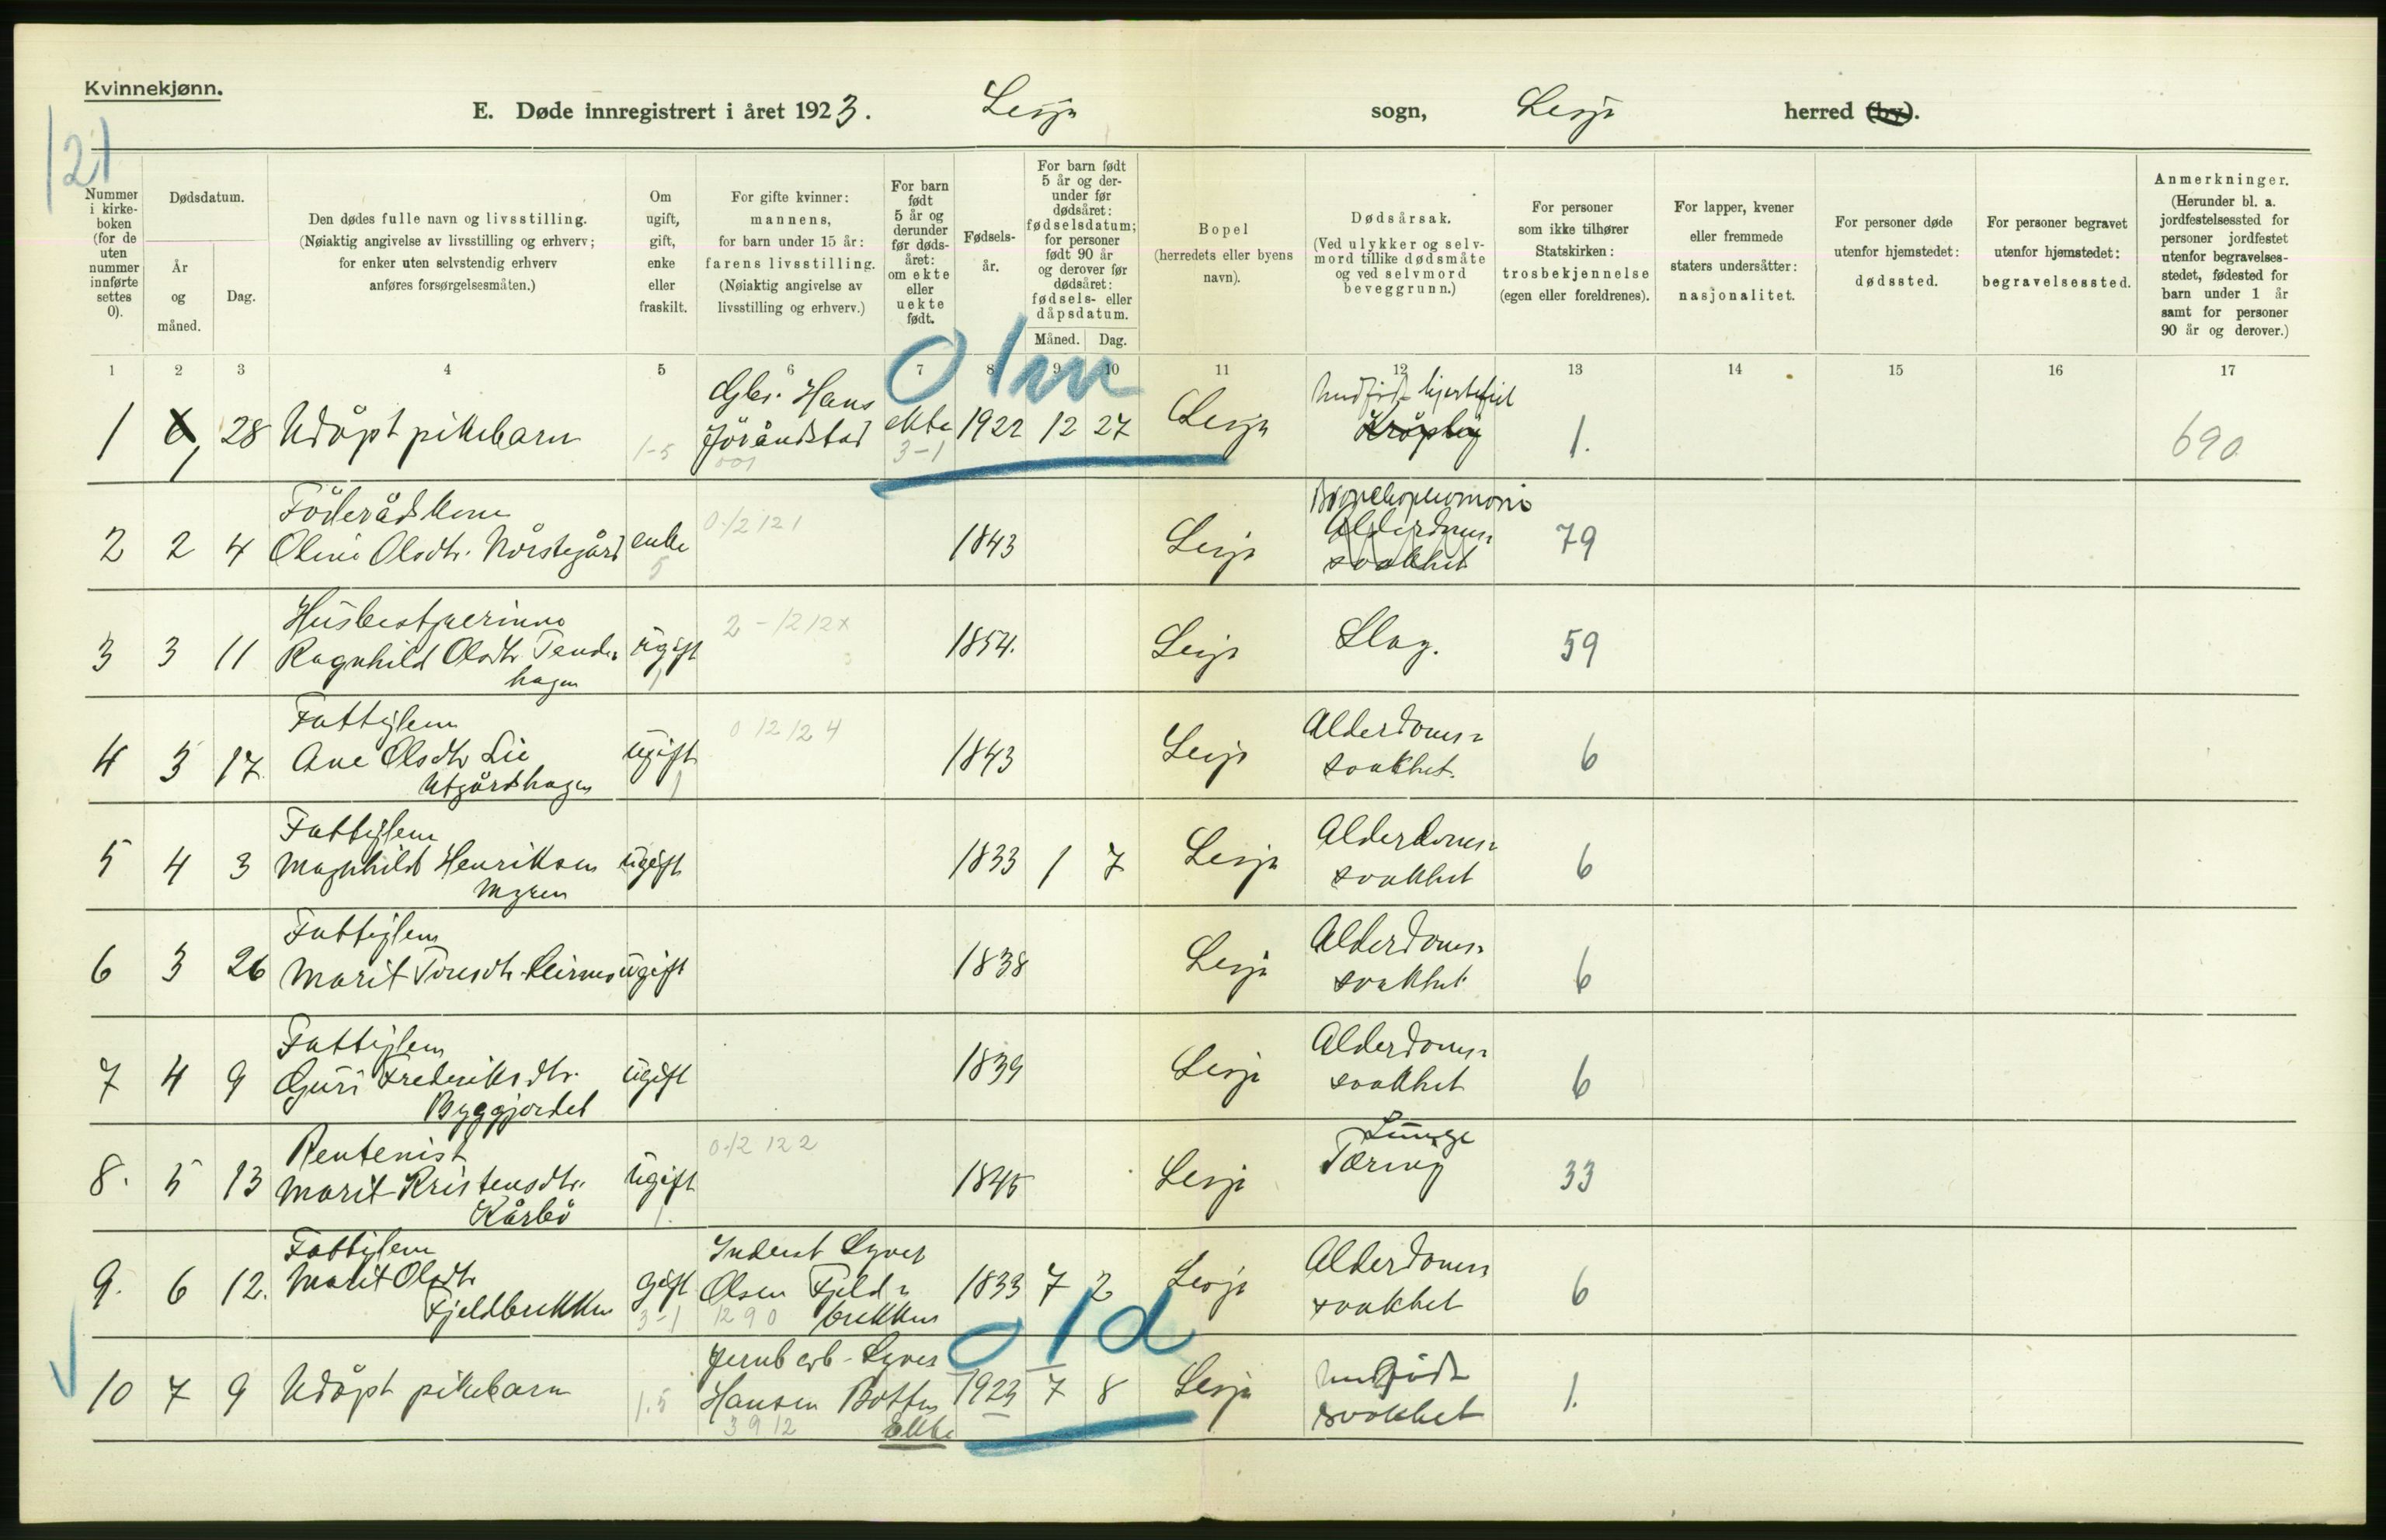 Kvinnekjønn.
E. Døde innregistrert i året 1923. Lesja sogn, Lesja herred (by).
121
Nummer i kirkeboken (for de uten nummer innførte settes 0).
Dødsdatum.
År og måned.
Dag.
Den dødes fulle navn og livsstilling.
(Nøiaktig angivelse av livsstilling og erhverv;
for enker uten selvstendig erhverv
anføres forsørgelsesmåten.)
Om ugift, gift, enke eller fraskilt.
For gifte kvinner: mannens,
for barn under 15 år:
farens livsstilling.
(Nøiaktig angivelse av
livsstilling og erhverv.)
For barn født 5 år og derunder før dødsåret: om ekte eller uekte født.
Fødselsår.
For barn født 5 år og derunder før dødsåret: fødselsdatum; for personer født 90 år og derover før dødsåret: fødsels- eller dåpsdatum.
Måned. Dag.
Bopel
(herredets eller byens
navn).
Dødsårsak.
(Ved ulykker og selvmord tillike dødsmåte
og ved selvmord
beveggrunn.)
For personer
som ikke tilhører
Statskirken:
trosbekjennelse
(egen eller foreldrenes).
For lapper, kvener
eller fremmede
staters undersåtter:
nasjonalitet.
For personer døde
utenfor hjemstedet:
dødssted.
For personer begravet
utenfor hjemstedet:
begravelsessted.
Anmerkninger.
(Herunder bl. a.
jordfestelsessted for
personer jordfestet
utenfor begravelses-
stedet, fødested for
barn under 1 år
samt for personer
90 år og derover.)
1 2 3 4 5 6 7 8 9 10 11 12 13 14 15 16 17
0 1m
Gbr. Hans medfødt hjertefeil
1 1 28 Udøpt pikebarn 1-5 Jöråndstad ekte 1922 12 27 Lesja Krøpling 1. 690
001 3-1
Föderådskone Bronchopneumoni
2 2 4 Oline Olsdtr. Nörstegård enke 0-12 121 1843 Lesja Alderdoms-svakhet 79
5
Husbestyerinne
3 3 11 Ragnhild Olsdtr Tende- ugift 2-1212x 1854. Lesja Slag. 59
hagen 1
Fattiglem
4 5 17 Ane Olsdtr Lie ugift 0 12 12 4 1843 Lesja Alderdoms-svakhet. 6
Utgårdshagen 1
Fattiglem
5 4 3 Magnhild Henriksen ugift 1833 1 7 Lesja Alderdoms-svakhet 6
Myren
Fattiglem
6 3 26 Marit Toresdtr. Leirmo ugift 1838 Lesja Alderdoms-svakhet 6
Fattiglem
7 4 9 Guri Frederiksdtr. ugift 1839 Lesja Alderdoms-svakhet 6
Byggjordet
Rentenist Lunge
8. 5 13 Marit Kristensdtr. ugift 0-12 122 1845 Lesja Tæring 33
Kårbö 1.
Fattiglem Inderst Syver
9. 6 12. Marit Olsdtr gift Olsen Fjeld- 1833 7 2 Lesja Alderdoms-svakhet 6
Fjeldbrekken 3-1 1290 brekken
0 1d
Jernb arb. Syver
10 7 9 Udøpt pikebarn 1.5 Hansen Botten 1923 7 8 Lesja Medfødt svakhet 1.
3912 ekte